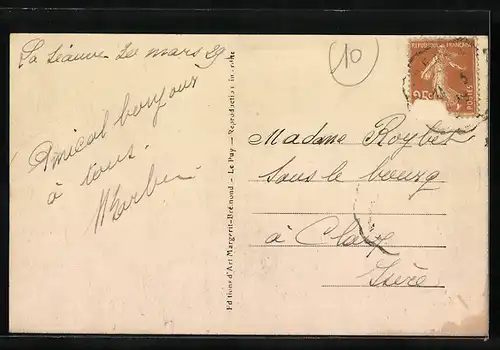 La Séauve Le mars 29
Amical bonjour
à tous.
Editions d'Art Margerit-Brémond - Le Puy — Reproduction interdite
10
REPUBLIQUE FRANÇAISE
25c
POSTES
Madame Roybet
sous le bourg
à Claix
Isère